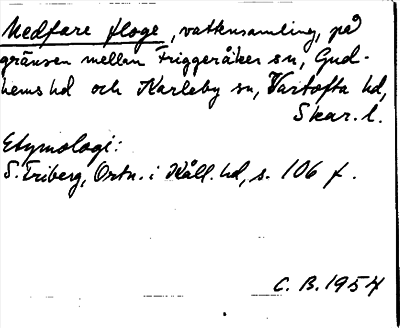 Medfare floge, vattensamling, på
gränsen mellan Friggeråker sn, Gud-
hems hd och Karleby sn, Vartofta hd,
Skar. l.
Etymologi:
S. Friberg, Ortn. i Kåll. hd, s. 106 f.
C. B. 1954